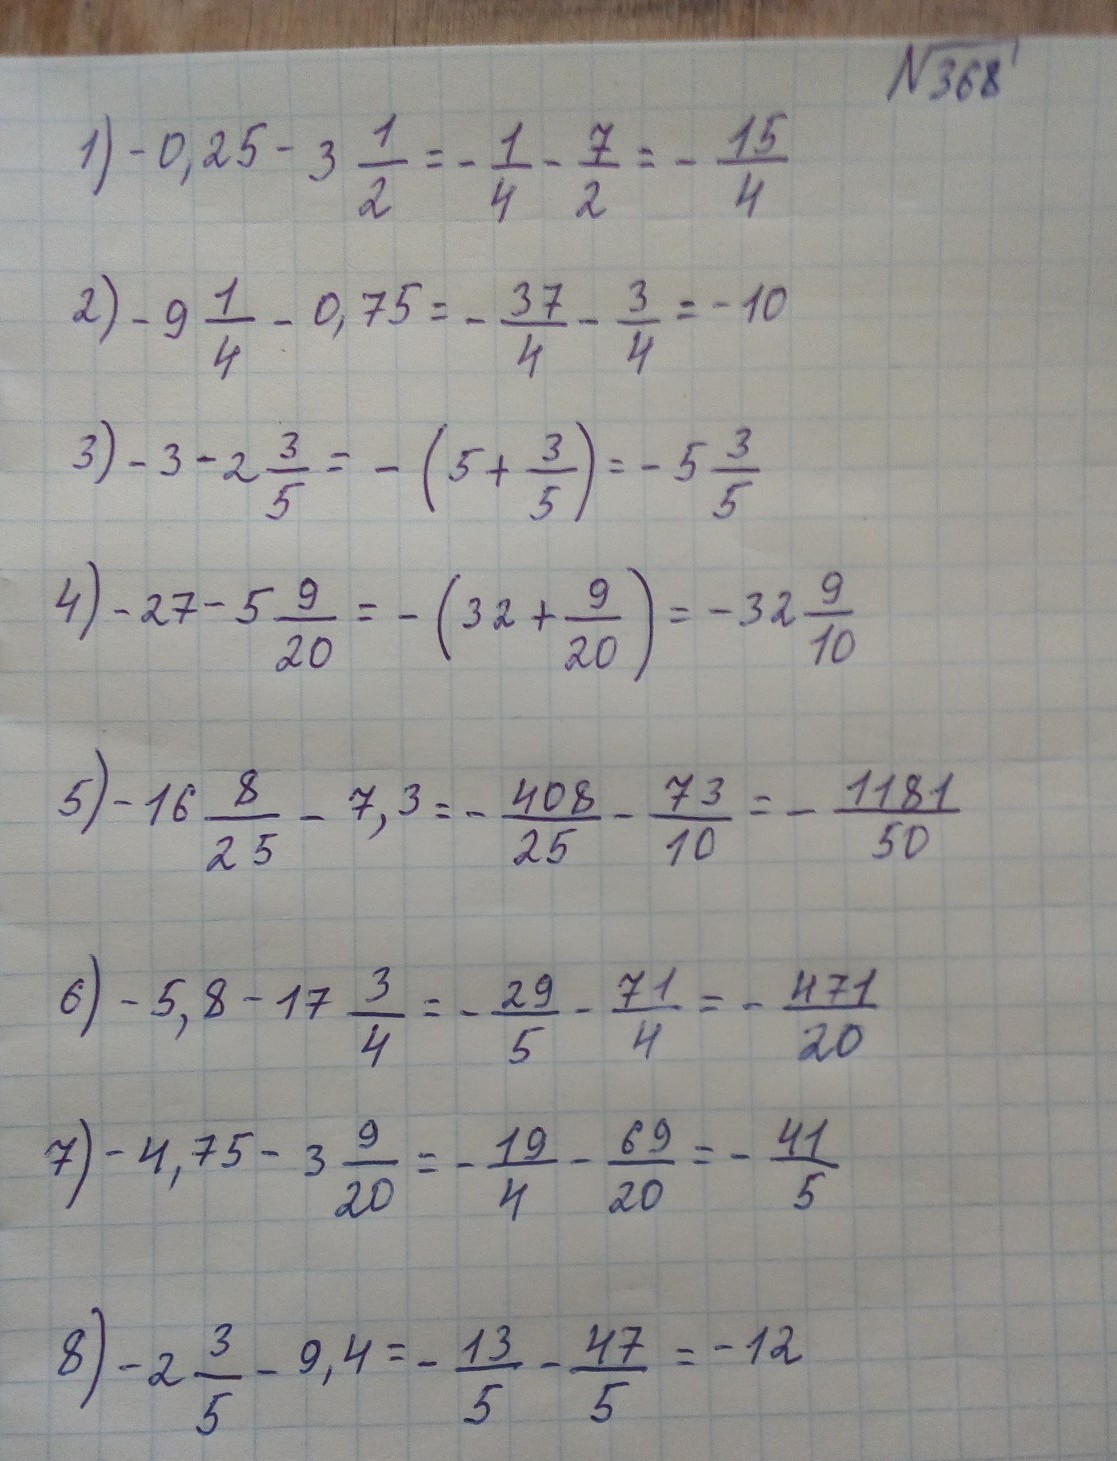 №368
1) -0,25 - 3 1/2 = - 1/4 - 7/2 = - 15/4
2) -9 1/4 - 0,75 = - 37/4 - 3/4 = -10
3) -3 - 2 3/5 = - (5 + 3/5) = -5 3/5
4) -27 - 5 9/20 = - (32 + 9/20) = -32 9/10
5) -16 8/25 - 7,3 = - 408/25 - 73/10 = - 1181/50
6) -5,8 - 17 3/4 = - 29/5 - 71/4 = - 471/20
7) -4,75 - 3 9/20 = - 19/4 - 69/20 = - 41/5
8) -2 3/5 - 9,4 = - 13/5 - 47/5 = -12